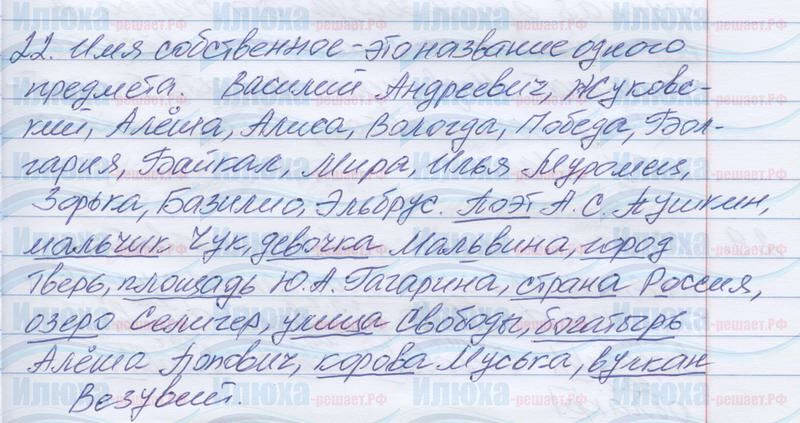 22. Имя собственное - это название одного
предмета. Василий Андреевич, Жуковс-
кий, Алёша, Алиса, Вологда, Победа, Бол-
гария, Байкал, Мира, Илья Муромец,
Зорька, Базилио, Эльбрус. Поэт А. С. Пушкин,
мальчик Чук, девочка Мальвина, город
Тверь, площадь Ю. А. Гагарина, страна Россия,
озеро Селигер, улица Свободы, богатырь
Алёша Попович, корова Муська, вулкан
Везувий.